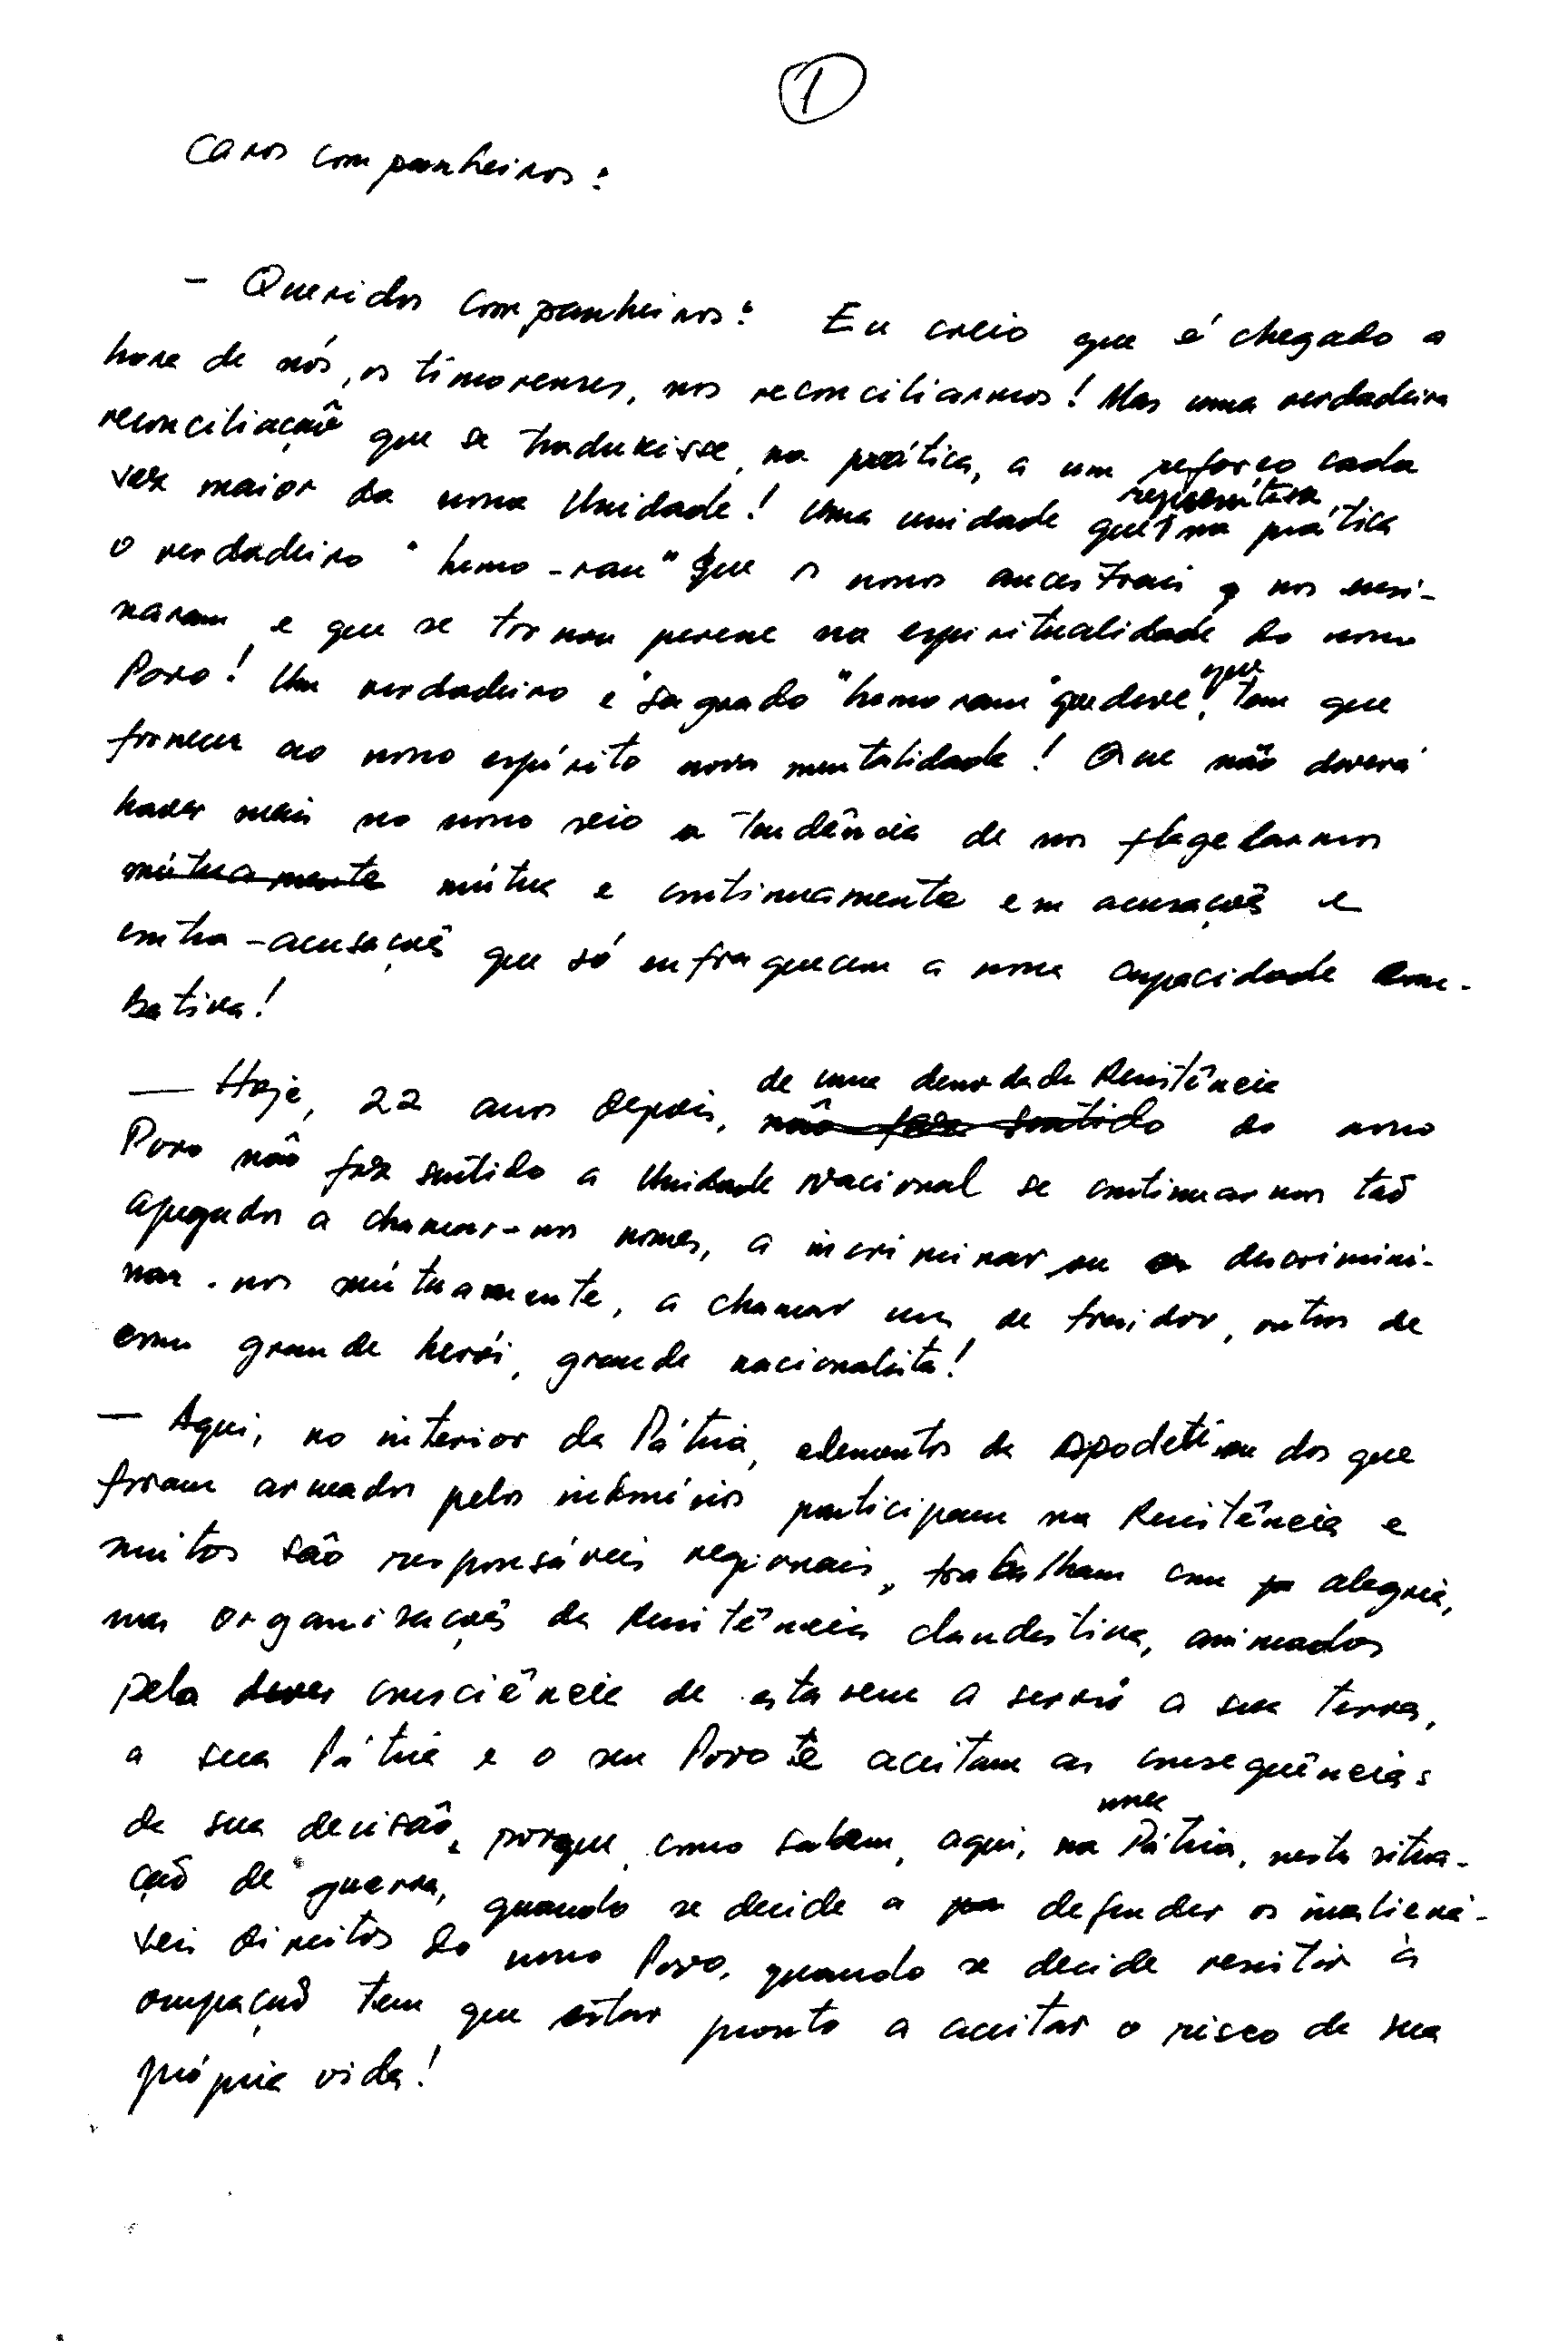 1
Caros companheiros:
- Queridos companheiros: Eu creio que é chegado a
hora de nós, os timorenses, nos reconciliarmos! Mas uma verdadeira
reconciliação que se traduzisse, na prática, a um reforço cada
vez maior da nossa Unidade! Uma unidade que representasse, na prática
o verdadeiro "hemo-ran" que os nossos ancestrais nos ensi-
naram e que se tornou perene na espiritualidade do nosso
Povo! Um verdadeiro e sagrado "hemo ran" que deve! que tem que
fornecer ao nosso espírito nova mentalidade! Que não deverá
haver mais no nosso seio a tendência de nos flagelarmos
mútuamente mútua e continuamente em acusações e
contra-acusações que só enfraquecem a nossa capacidade com-
bativa!
— Hoje, 22 anos depois, de uma denodada Resistência
não faz sentido do nosso
Povo não faz sentido a Unidade Nacional se continuarmos tão
apegados a chamar-nos nomes, a incriminar ou descrimini-
nar-nos mútuamente, a chamar uns de traidor, outros de
como grande herói, grande nacionalista!
— Aqui, no interior da Pátria, elementos da Apodeti ou dos que
foram armados pelos indonésios participam na Resistência e
muitos são responsáveis regionais, trabalham com alegria,
nas organizações da Resistência clandestina, animados
pela consciência de estarem a servir a sua terra,
a sua Pátria e o seu Povo e aceitam as consequências
da sua decisão, porque, como sabem, aqui, na nossa Pátria, nesta situa-
ção de guerra, quando se decide a defender os inaliená-
veis direitos do nosso Povo, quando se decide resistir à
ocupação tem que estar pronto a aceitar o risco da sua
própria vida!